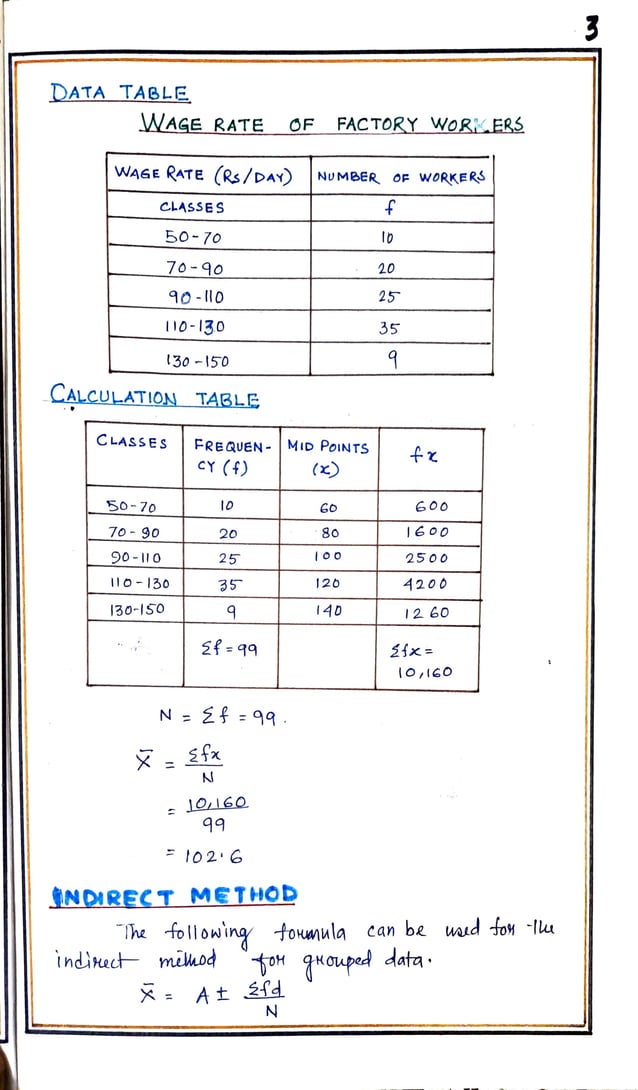 3
DATA TABLE
WAGE RATE OF FACTORY WORKERS
WAGE RATE (RS/DAY) NUMBER OF WORKERS
CLASSES f
50-70 10
70-90 20
90-110 25
110-130 35
130-150 9
CALCULATION TABLE
CLASSES FREQUEN- MID POINTS fx
CY (f) (x)
50-70 10 60 600
70-90 20 80 1600
90-110 25 100 2500
110-130 35 120 4200
130-150 9 140 1260
Σf = 99 Σfx =
10,160
N = Σf = 99.
X̄ = Σfx
N
= 10,160
99
= 102.6
INDIRECT METHOD
The following formula can be used for the
indirect method for grouped data.
X̄ = A ± Σfd
N